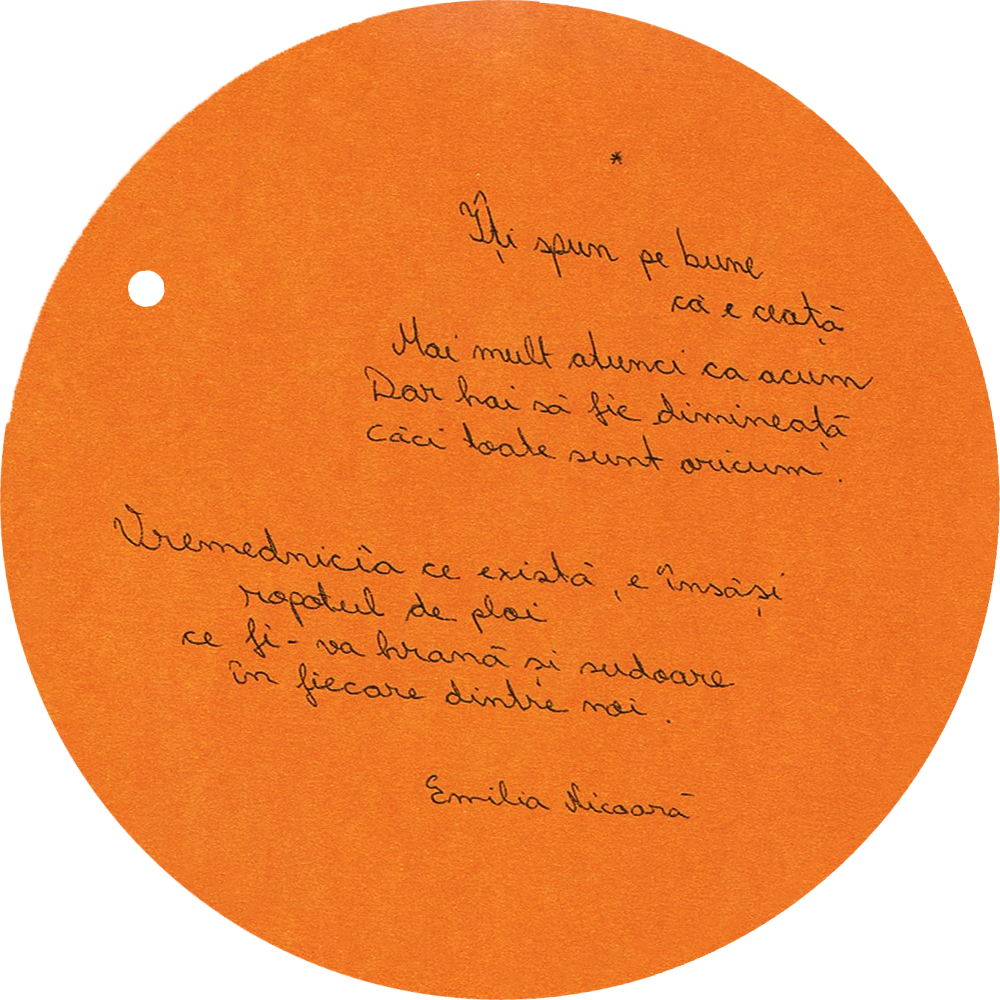 *
Îți spun pe bune
că e ceață
Mai mult atunci ca acum
Dar hai să fie dimineață
căci toate sunt oricum.
Vremednicîa ce există, e însăși
ropotul de ploi
ce fi-va hrană și sudoare
în fiecare dintre noi.
Emilia Nicoară